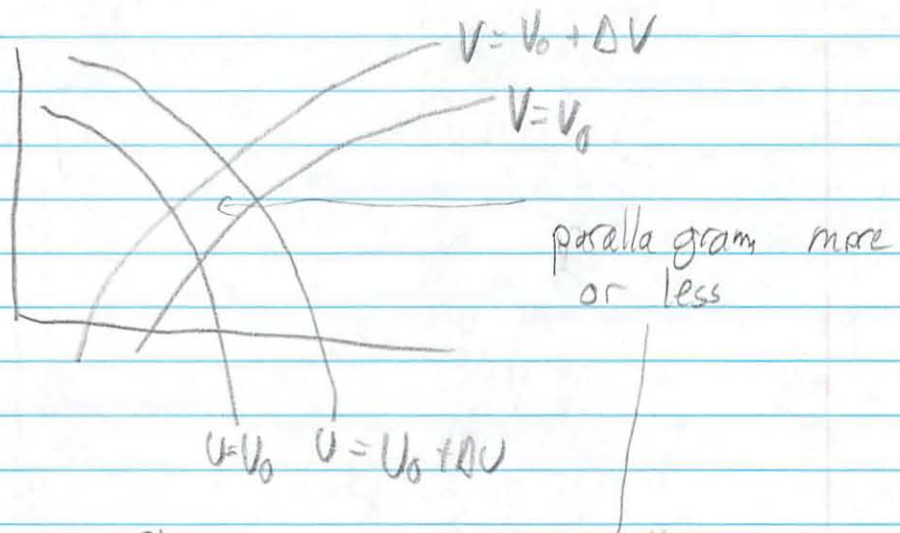 V = V₀ + ΔV
V = V₀
paralla gram, more
or less
U = U₀ U = U₀ + ΔU